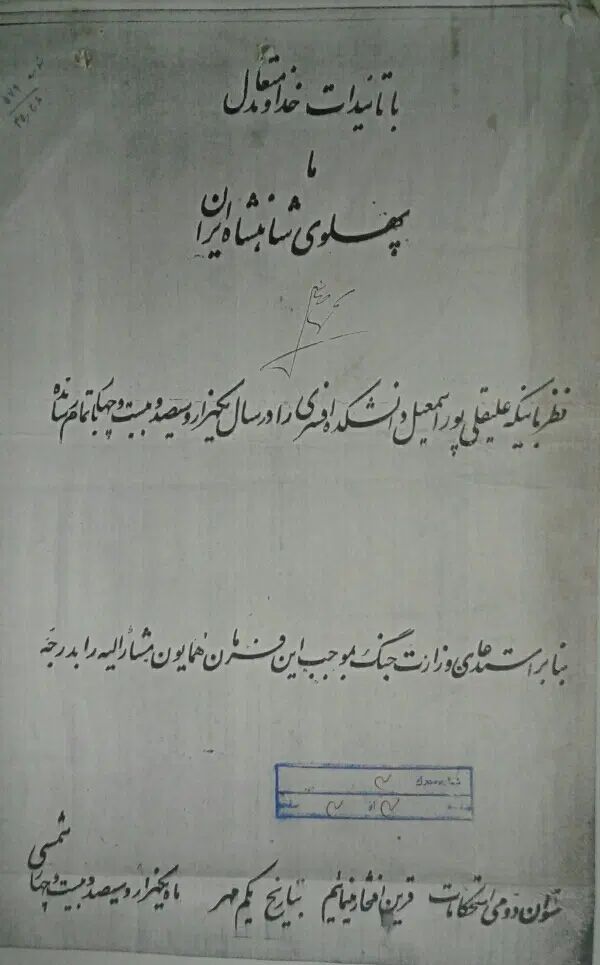 ۵۷۹
۳۵،۲،۸
با تائیدات خداوند متعال
ما
پهلوی شاهنشاه ایران
نظر باینکه علیقلی پوراسمعیل دانشکده افسری را در سال یکهزار و سیصد و بیست و چهار باتمام رسانده
بنا بر استدعای وزارت جنگ بموجب این فرمان همایون مشارالیه را بدرجه
ستوان دومی استحکامات قرین افتخار مینمائیم بتاریخ یکم مهر ماه یکهزار و سیصد و بیست و چهار شمسی